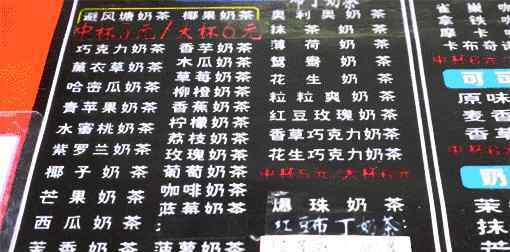 避风塘奶茶 椰果奶茶
中杯5元/大杯6元
巧克力奶茶
薰衣草奶茶
哈密瓜奶茶
青苹果奶茶
水蜜桃奶茶
紫罗兰奶茶
椰子奶茶
芒果奶茶
西瓜奶茶
茴香奶茶
香芋奶茶
木瓜奶茶
草莓奶茶
柳橙奶茶
香蕉奶茶
柠檬奶茶
荔枝奶茶
玫瑰奶茶
葡萄奶茶
咖啡奶茶
蓝莓奶茶
菠萝奶茶
布丁奶茶
奥利奥奶茶
抹茶奶茶
薄荷奶茶
鸳鸯奶茶
花生奶茶
粒粒爽奶茶
红豆玫瑰奶茶
香草巧克力奶茶
花生巧克力奶茶
中杯5元/大杯6元
爆珠奶茶
红豆布丁奶茶
拿铁
摩卡
卡布奇诺
可可
原味
麦香
香草
奶
茉
抹